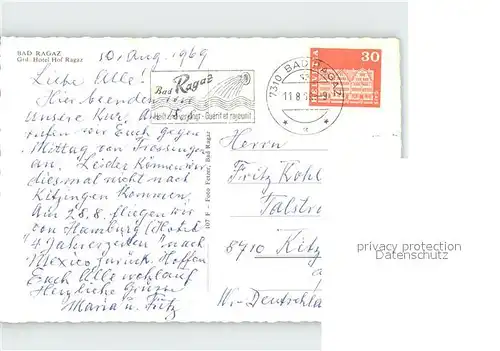 BAD RAGAZ
Grd. Hotel Hof Ragaz
10. Aug. 1969
Liebe Alle!
Hier beenden wir
unsere Kur, Am
rufen wir Euch gegen
Mittag von
an. Leider können wir
diesmal nicht nach
Kitzingen kommen.
Am 28.8. fliegen wir
von Hamburg (Hotel
"4 Jahreszeiten" nach
Mexico zurück. Hoffen
Euch Alle wohlauf
Herzliche Grüsse
Maria u. Fritz
107 F - Foto Fetzer, Bad Ragaz
Bad Ragaz
7310 BAD RAGAZ
11.8.
HELVETIA
30
Herrn
Fritz Kohl
Talstr
8710 Kitz
W.-Deutschla
privacy protection
Datenschutz